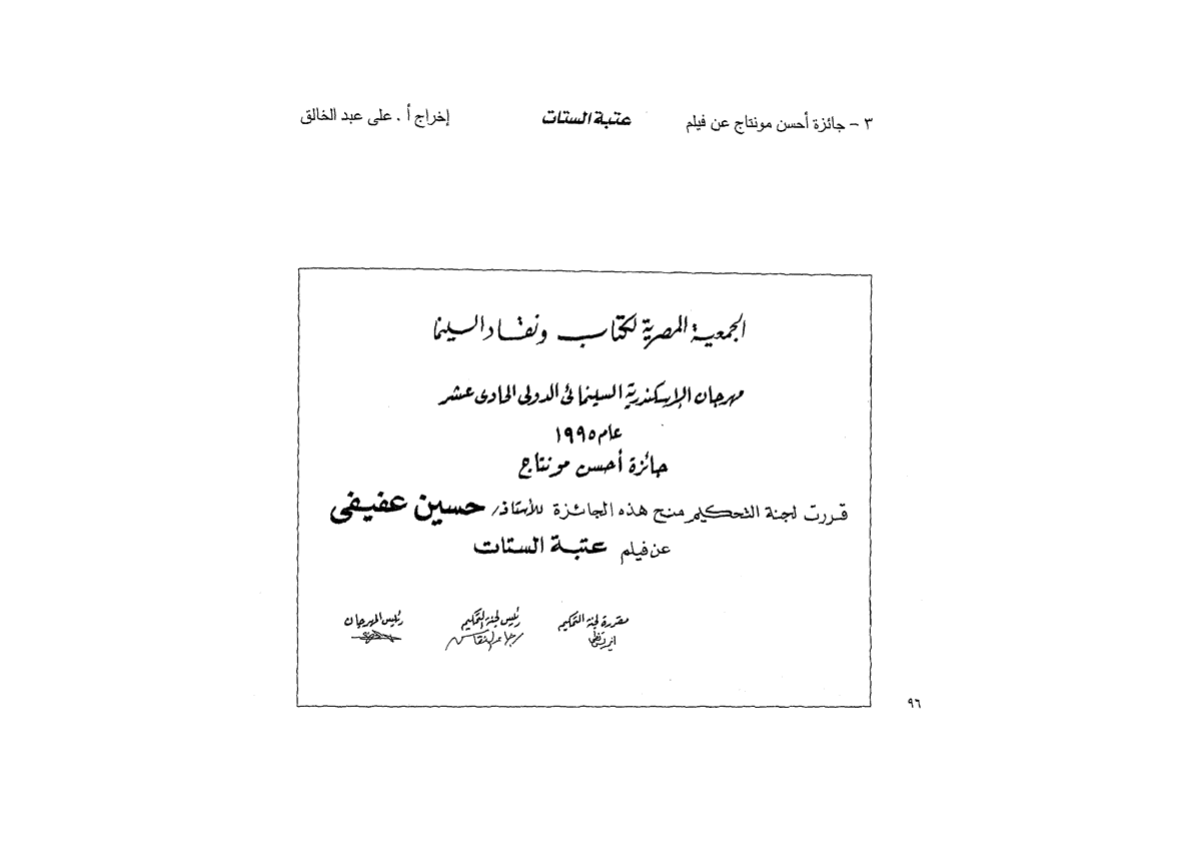 ٣ – جائزة أحسن مونتاج عن فيلم عتبة الستات إخراج أ . على عبد الخالق
الجمعية المصرية لكتاب ونقاد السينما
مهرجان الإسكندرية السينمائى الدولى الحادى عشر
عام ١٩٩٥
جائزة أحسن مونتاج
قررت لجنة التحكيم منح هذه الجائزة للأستاذ/ حسين عفيفى
عن فيلم عتبة الستات
مقررة لجنة التحكيم رئيس لجنة التحكيم رئيس المهرجان
٩٦